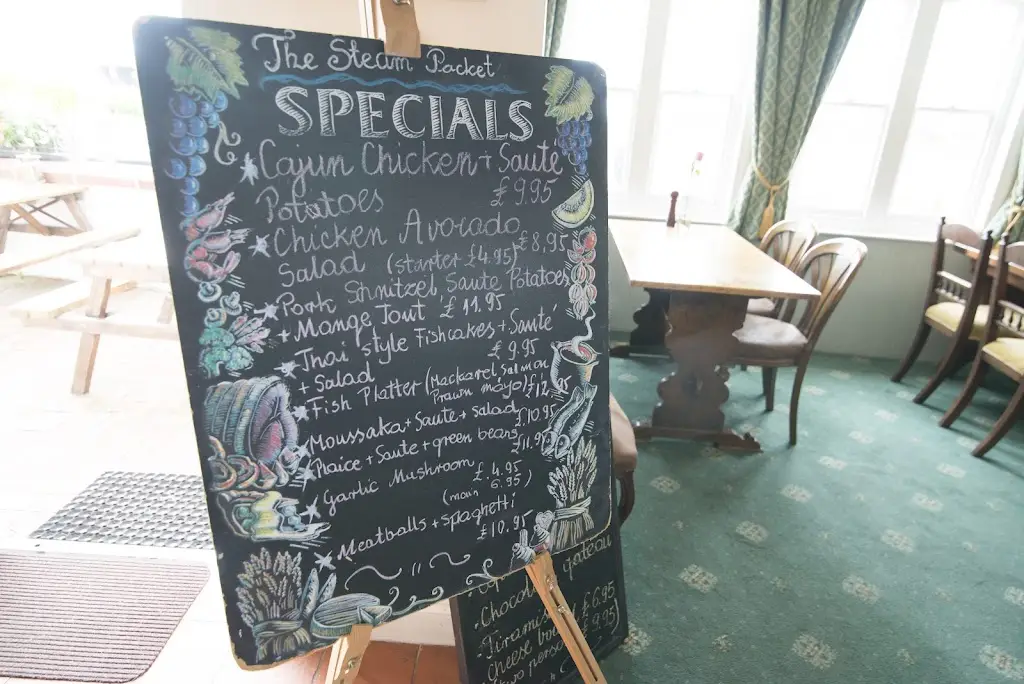 The Steam Packet
SPECIALS
Cajun Chicken + Saute
Potatoes £9.95
Chicken Avorado
Salad (starter £4.95) £8,95
Pork Shnitzel Saute Potatoes
+ Mange Tout £11.95
Thai style Fishcakes + Sauté
+ Salad £9.95
Fish Platter (Mackarel, Salmon
Prawn mayo) £12.95
Moussaka + Saute + salad £10.95
Plaice + Saute + green beans £11.95
Garlic Mushroom £4.95
(main 6.95)
Meatballs + spaghetti
£10.95
gateau
Chocol
Tiramis £6.95
Cheese boa £9.95)
two perso